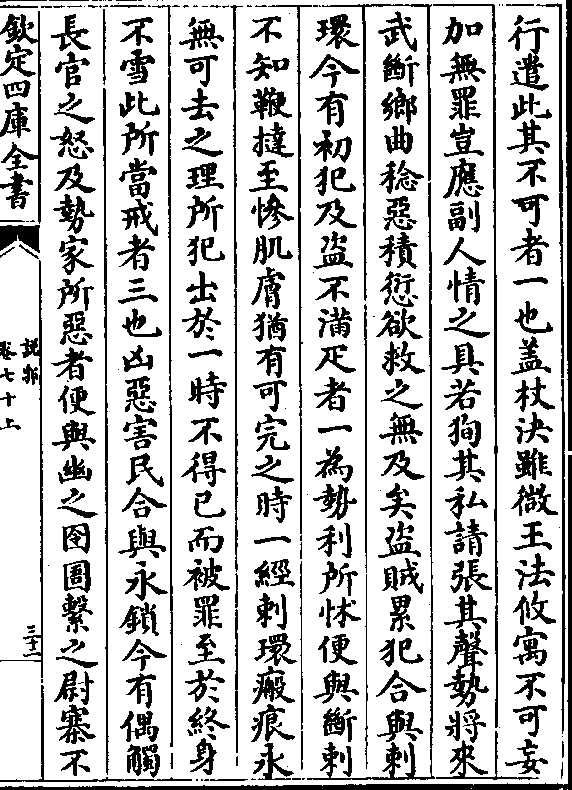 行遣此其不可者一也盖杖決雖微王法攸寓不可妄
加無罪豈應副人情之具若狥其私請張其聲勢將來
武斷鄉曲稔惡積愆欲救之無及矣盗賊累犯合與刺
環今有初犯及盗不滿疋者一為勢利所怵便與斷刺
不知鞭撻至慘肌膚猶有可完之時一經刺環瘢痕永
無可去之理所犯出於一時不得已而被罪至於終身
不雪此所當戒者三也凶惡害民合與永鎖今有偶觸
長官之怒及勢家所惡者便與幽之囹圄繫之尉寨不
欽定四庫全書
說郛
卷七十上
三十二